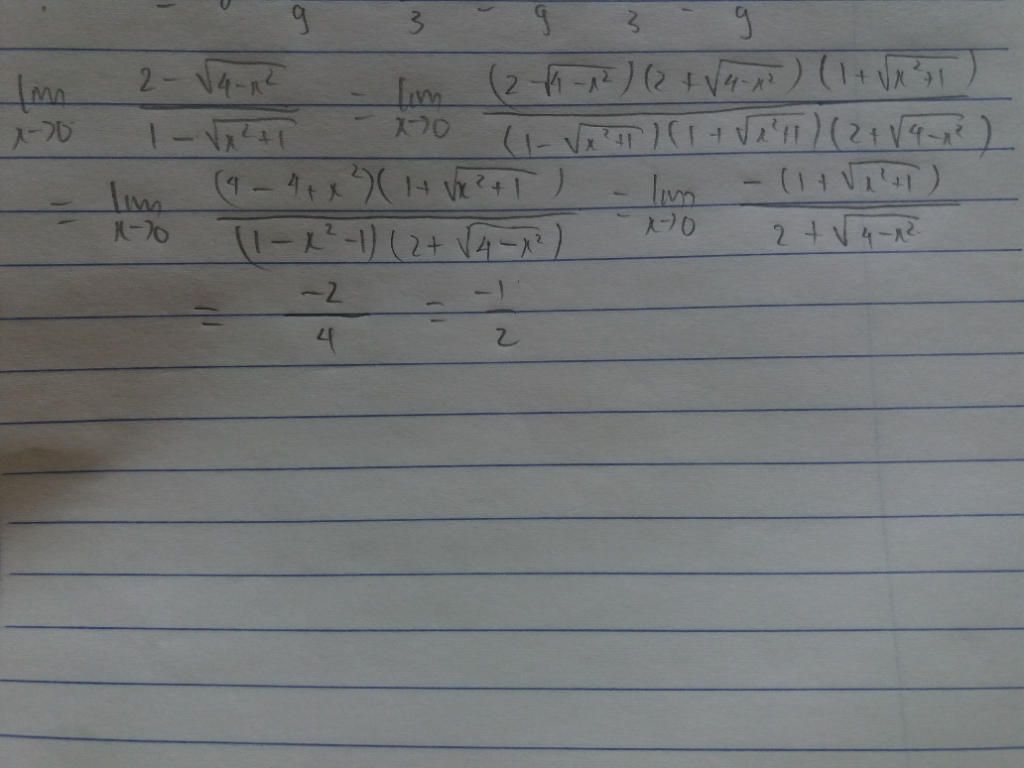 9 3 - 9 3 - 9
lim x→0 (2 - √(4-x²))/(1 - √(x²+1)) = lim x→0 ((2-√(4-x²))(2+√(4-x²))(1+√(x²+1)))/((1-√(x²+1))(1+√(x²+1))(2+√(4-x²)))
= lim x→0 ((4-4+x²)(1+√(x²+1)))/((1-x²-1)(2+√(4-x²))) = lim x→0 (-(1+√(x²+1)))/(2+√(4-x²))
= -2/4 = -1/2